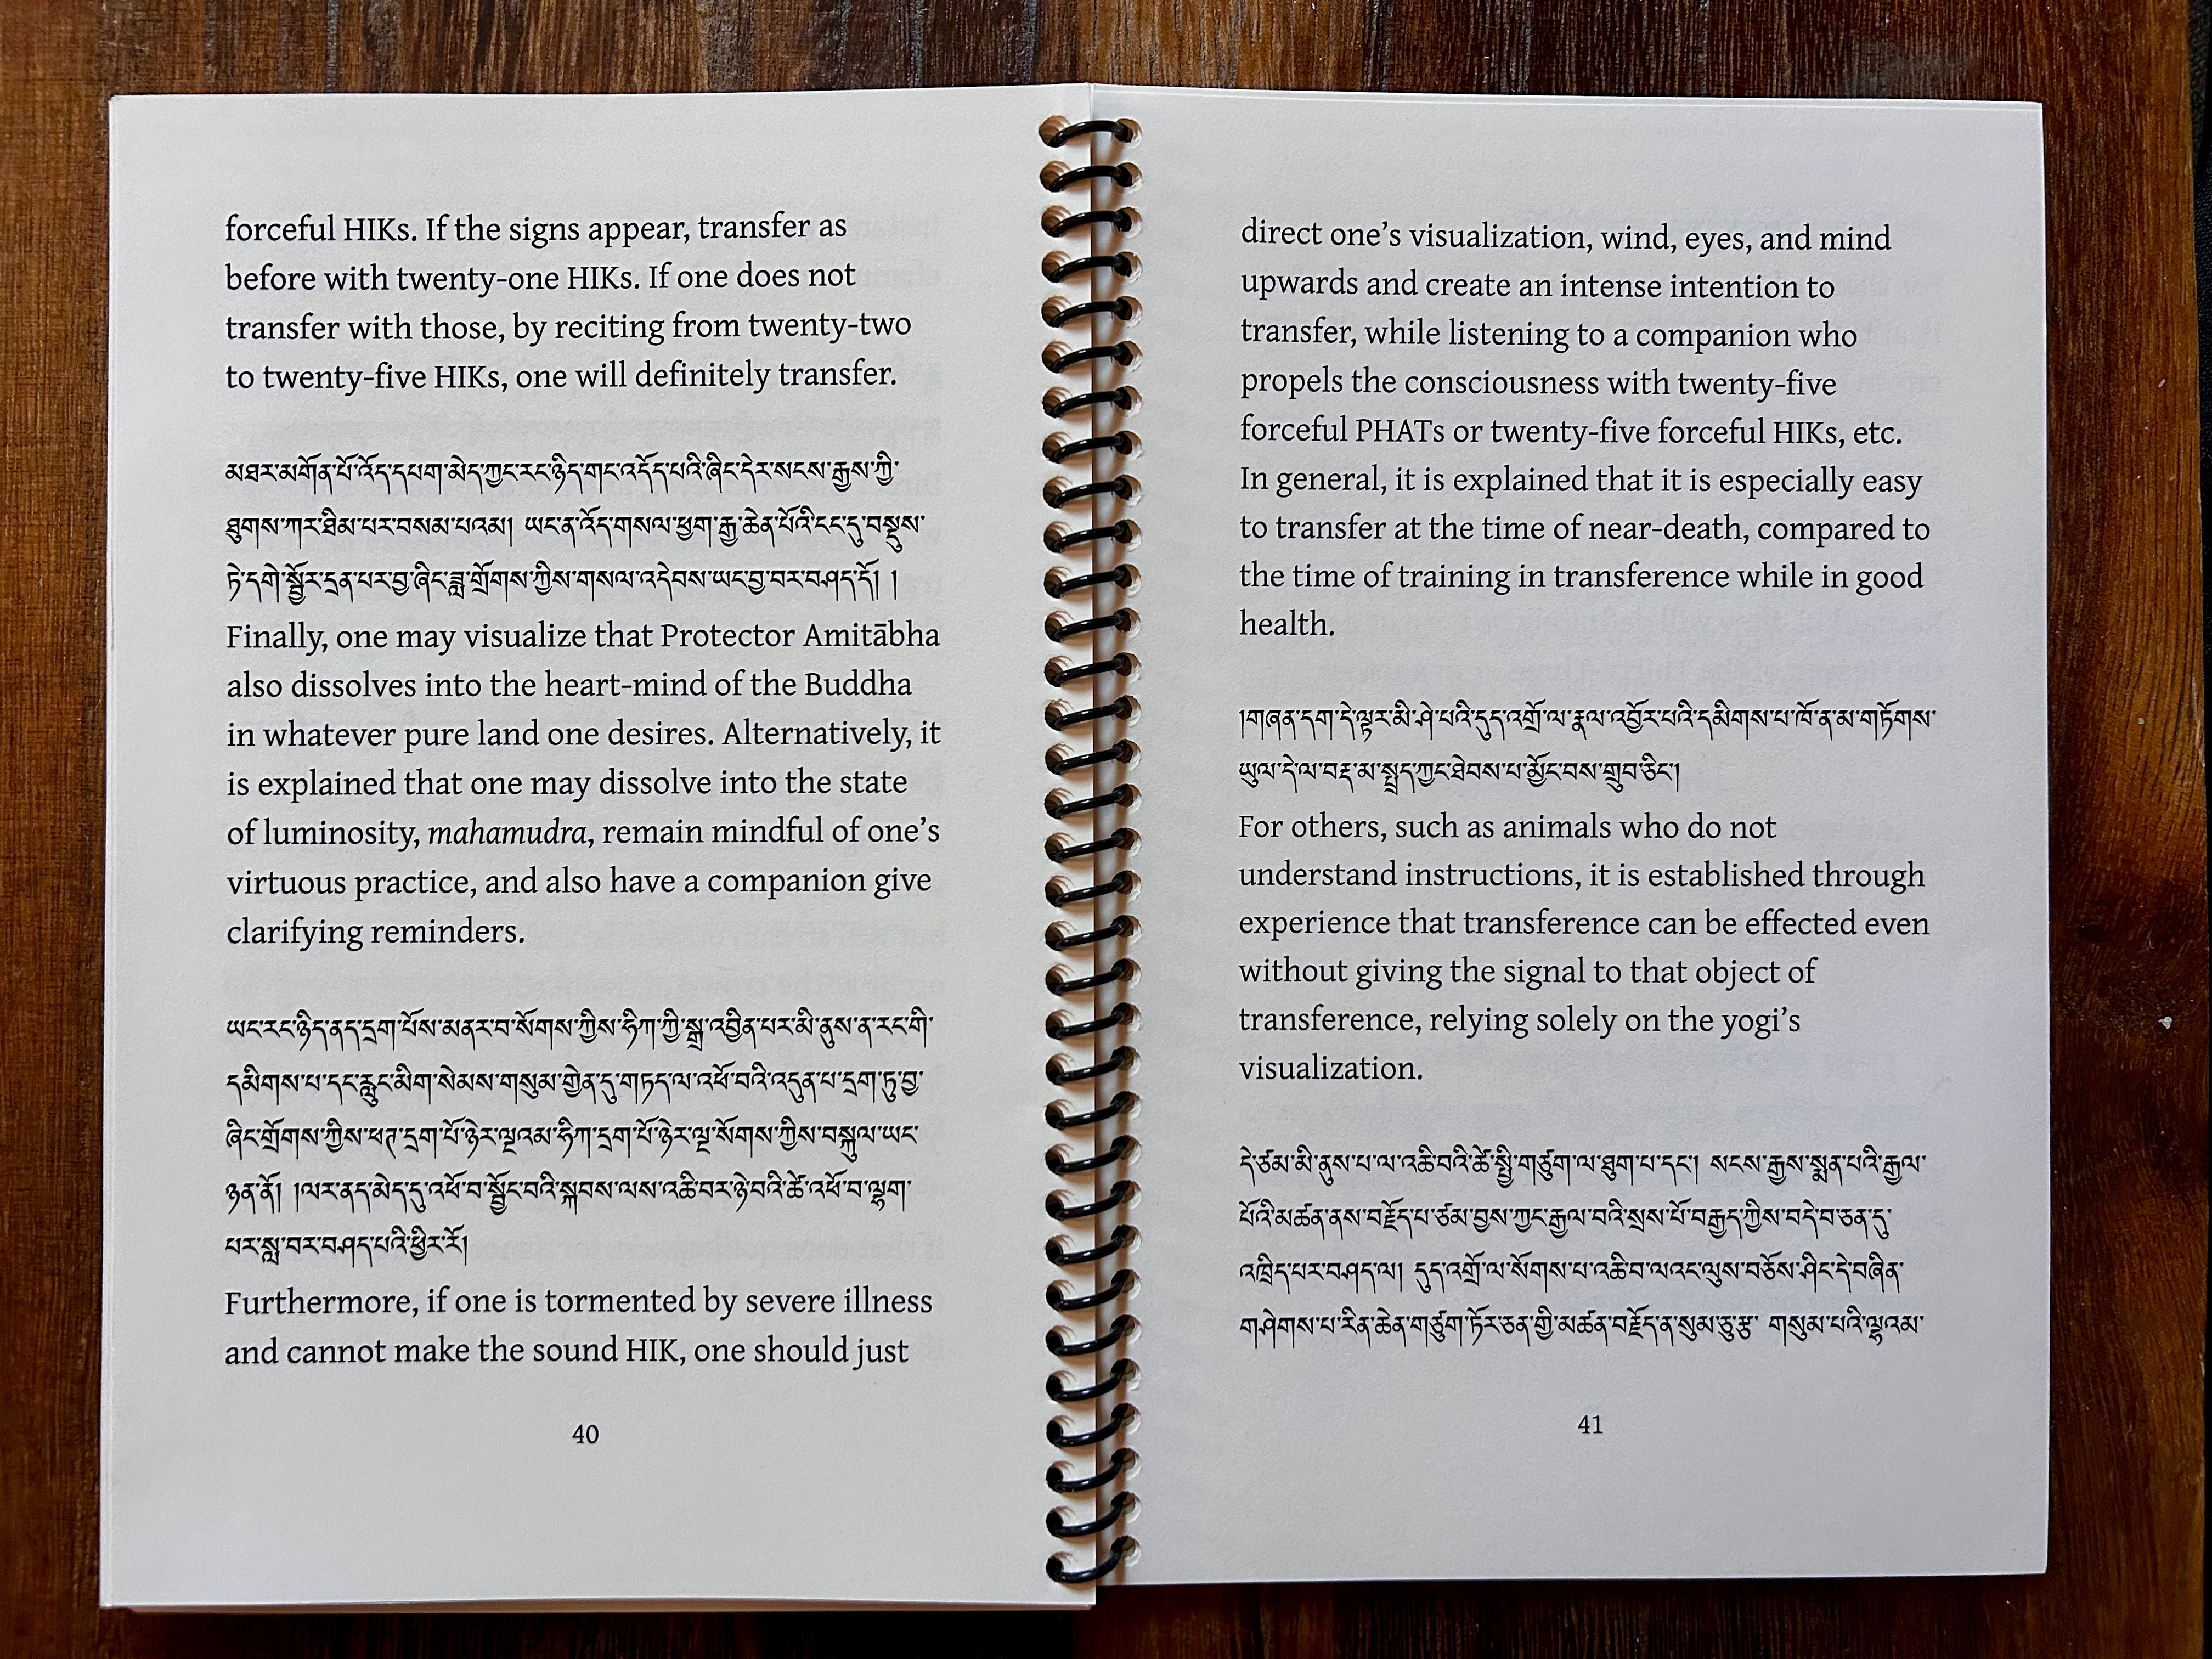 forceful HIKs. If the signs appear, transfer as
before with twenty-one HIKs. If one does not
transfer with those, by reciting from twenty-two
to twenty-five HIKs, one will definitely transfer.
མཐར་མགོན་པོ་འོད་དཔག་མེད་ཀྱང་རང་ཉིད་གང་འདོད་པའི་ཞིང་དེར་སངས་རྒྱས་ཀྱི་
ཐུགས་ཀར་ཐིམ་པར་བསམ་པའམ། ཡང་ན་འོད་གསལ་ཕྱག་རྒྱ་ཆེན་པོའི་ངང་དུ་བསྡུས་
ཏེ་དགེ་སྦྱོར་དྲན་པར་བྱ་ཞིང་ཟླ་གྲོགས་ཀྱིས་གསལ་འདེབས་ཡང་བྱ་བར་བཤད་དོ། །
Finally, one may visualize that Protector Amitābha
also dissolves into the heart-mind of the Buddha
in whatever pure land one desires. Alternatively, it
is explained that one may dissolve into the state
of luminosity, mahamudra, remain mindful of one’s
virtuous practice, and also have a companion give
clarifying reminders.
ཡང་རང་ཉིད་ནད་དྲག་པོས་མནར་བ་སོགས་ཀྱིས་ཧིཀ་ཀྱི་སྒྲ་འབྱིན་པར་མི་ནུས་ན་རང་གི་
དམིགས་པ་དང་རླུང་མིག་སེམས་གསུམ་གྱེན་དུ་གཏད་ལ་འཕོ་བའི་འདུན་པ་དྲག་ཏུ་བྱ་
ཞིང་གྲོགས་ཀྱིས་ཕཊ་དྲག་པོ་ཉེར་ལྔའམ་ཧིཀ་དྲག་པོ་ཉེར་ལྔ་སོགས་ཀྱིས་བསྐུལ་ཡང་
ཉན་ནོ། །ལར་ནད་མེད་དུ་འཕོ་བ་སྦྱོང་བའི་སྐབས་ལས་འཆི་བར་ཉེ་བའི་ཚེ་འཕོ་བ་ལྷག་
པར་སླ་བར་བཤད་པའི་ཕྱིར་རོ།
Furthermore, if one is tormented by severe illness
and cannot make the sound HIK, one should just
40
direct one’s visualization, wind, eyes, and mind
upwards and create an intense intention to
transfer, while listening to a companion who
propels the consciousness with twenty-five
forceful PHATs or twenty-five forceful HIKs, etc.
In general, it is explained that it is especially easy
to transfer at the time of near-death, compared to
the time of training in transference while in good
health.
།གཞན་དག་དེ་ལྟར་མི་ཤེ་པའི་དུད་འགྲོ་ལ་རྣལ་འབྱོར་པའི་དམིགས་པ་ཁོ་ན་མ་གཏོགས་
ཡུལ་དེ་ལ་བརྡ་མ་སྤྲད་ཀྱང་ཐེབས་པ་མྱོང་བས་གྲུབ་ཅིང་།
For others, such as animals who do not
understand instructions, it is established through
experience that transference can be effected even
without giving the signal to that object of
transference, relying solely on the yogi’s
visualization.
དེ་ཙམ་མི་ནུས་པ་ལ་འཆི་བའི་ཚེ་སྤྱི་གཙུག་ལ་ཐུག་པ་དང་། སངས་རྒྱས་སྨན་པའི་རྒྱལ་
པོའི་མཚན་ནས་བརྗོད་པ་ཙམ་བྱས་ཀྱང་རྒྱལ་བའི་སྲས་པོ་བརྒྱད་ཀྱིས་བདེ་བ་ཅན་དུ་
འཁྲིད་པར་བཤད་ལ། དུད་འགྲོ་ལ་སོགས་པ་འཆི་བ་ལའང་ལུས་བཅོས་ཤིང་དེ་བཞིན་
གཤེགས་པ་རིན་ཆེན་གཙུག་ཏོར་ཅན་གྱི་མཚན་བརྗོད་ན་སུམ་ཅུ་རྩ་ གསུམ་པའི་ལྷའམ་
41